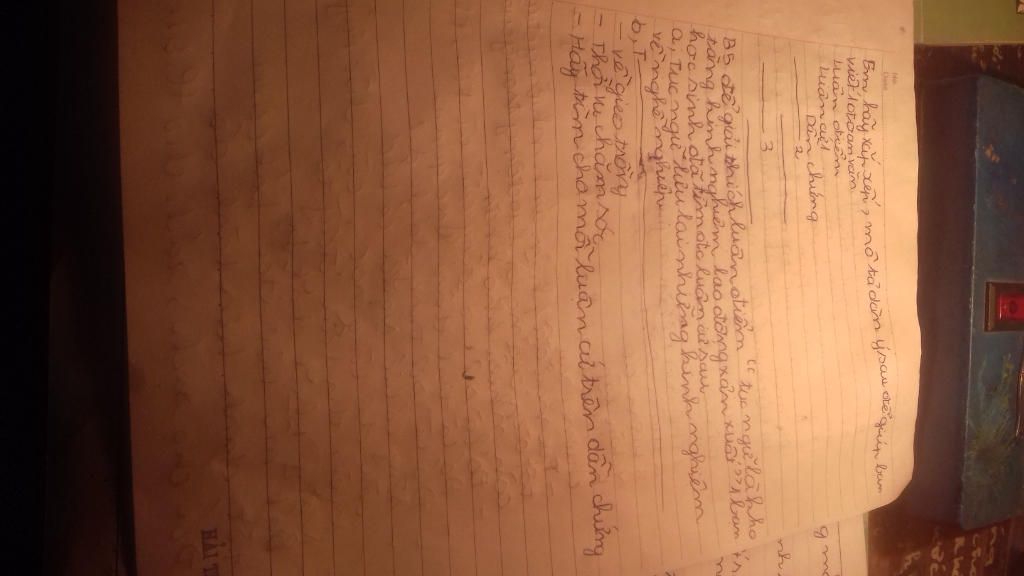 Em hãy xắp xếp, mô tả dàn ý sau để giúp bạn
viết bài
Luận điểm
Luận cứ 1
Dẫn chứng
2
3
B5 để giải thích luận điểm "tục ngữ là kho
tàng kinh nghiệm lao động sản xuất", bạn
học sinh đã tìm các luận cứ sau
a, Tục ngữ nêu lại những kinh nghiệm
về nghề nghiệp
b, T
- Về gieo trồng
- Thời vụ chăm sóc
- Hãy tìm cho mỗi luận cứ trên dẫn chứng
HẢI T